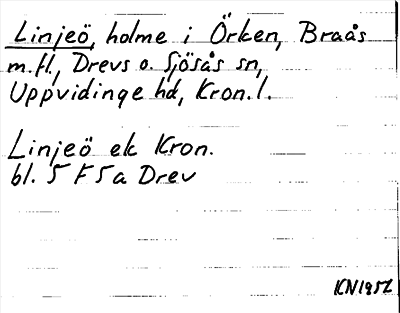 Linjeö, holme i Örken, Braås
m.fl., Drevs o. Sjösås sn,
Uppvidinge hd, Kron.l.
Linjeö ek Kron.
bl. 5 F 5a Drev
KN1952